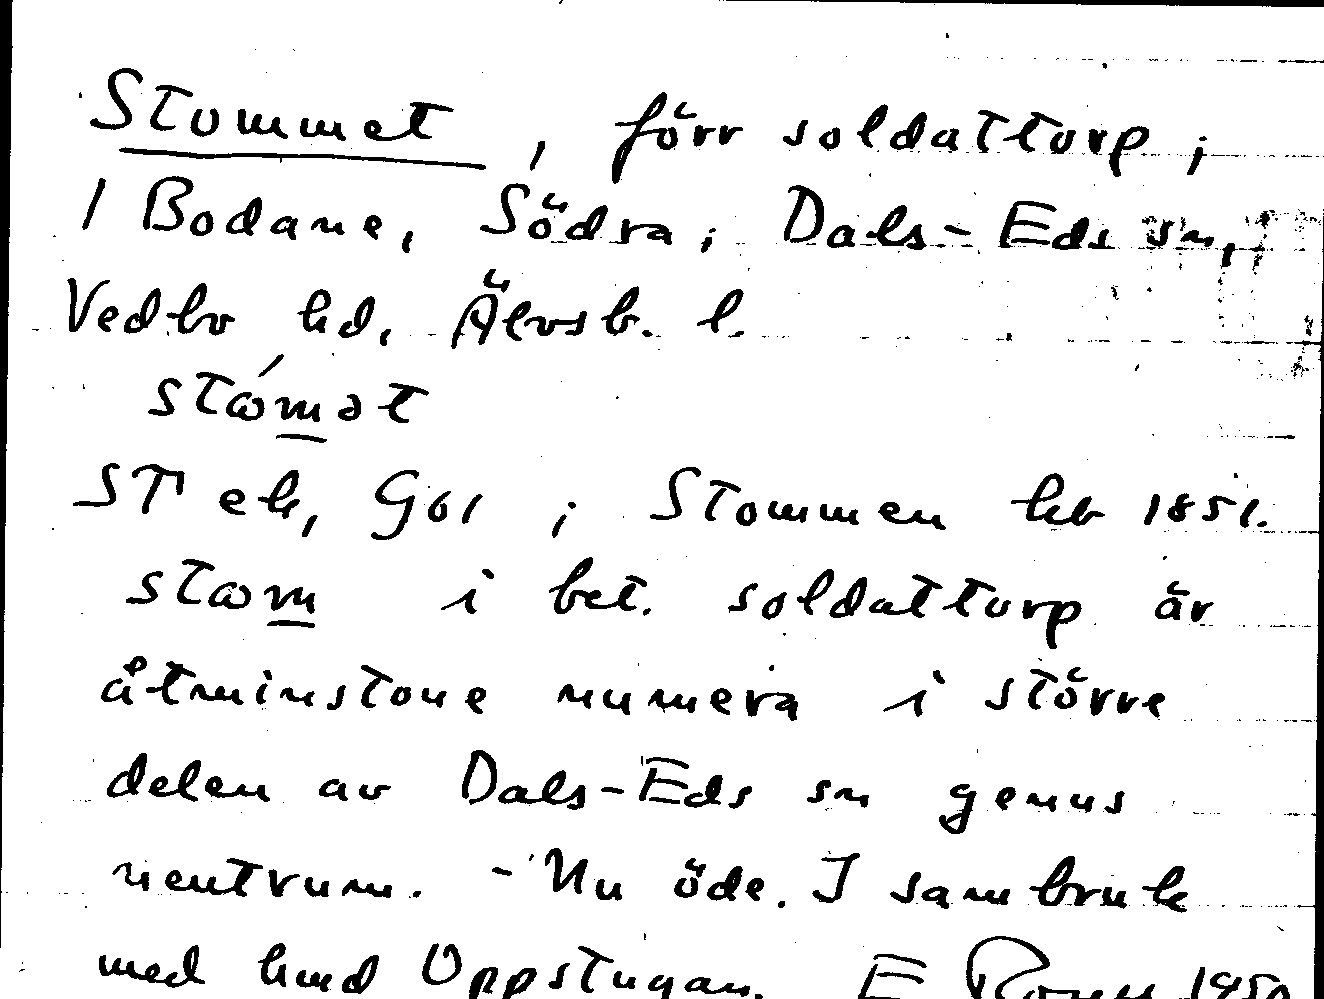 Stommet, förr soldattorp;
1 Bodane, Södra; Dals-Eds sn,
Vedbo hd, Älvsb. l.
ståmət
ST ek, G61; Stommen kb 1851.
stam i bet. soldattorp är
åtminstone numera i större
delen av Dals-Eds sn genus
neutrum. - Nu öde. I sambruk
med hmd Uppstugan. E